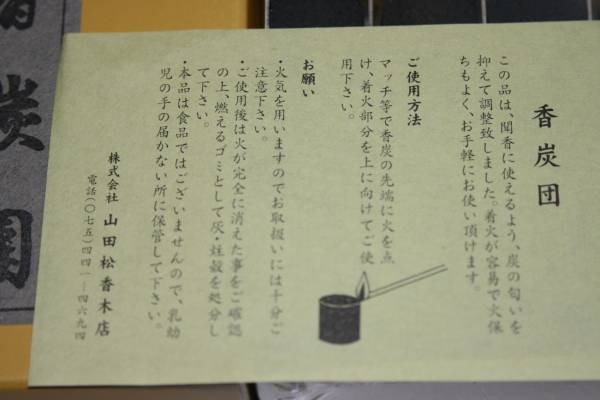 香炭団
この品は、聞香に使えるよう、炭の匂いを
抑えて調整致しました。着火が容易で火保
ちもよく、お手軽にお使い頂けます。
ご使用方法
マッチ等で香炭の先端に火を点
け、着火部分を上に向けてご使
用下さい。
お願い
・火気を用いますのでお取扱いには十分ご
注意下さい。
・ご使用後は火が完全に消えた事をご確認
の上、燃えるゴミとして灰・炷殻を処分し
て下さい。
・本品は食品ではございませんので、乳幼
児の手の届かない所に保管して下さい。
株式会社 山田松香木店
電話(〇七五)四四一―四六九四
炭團